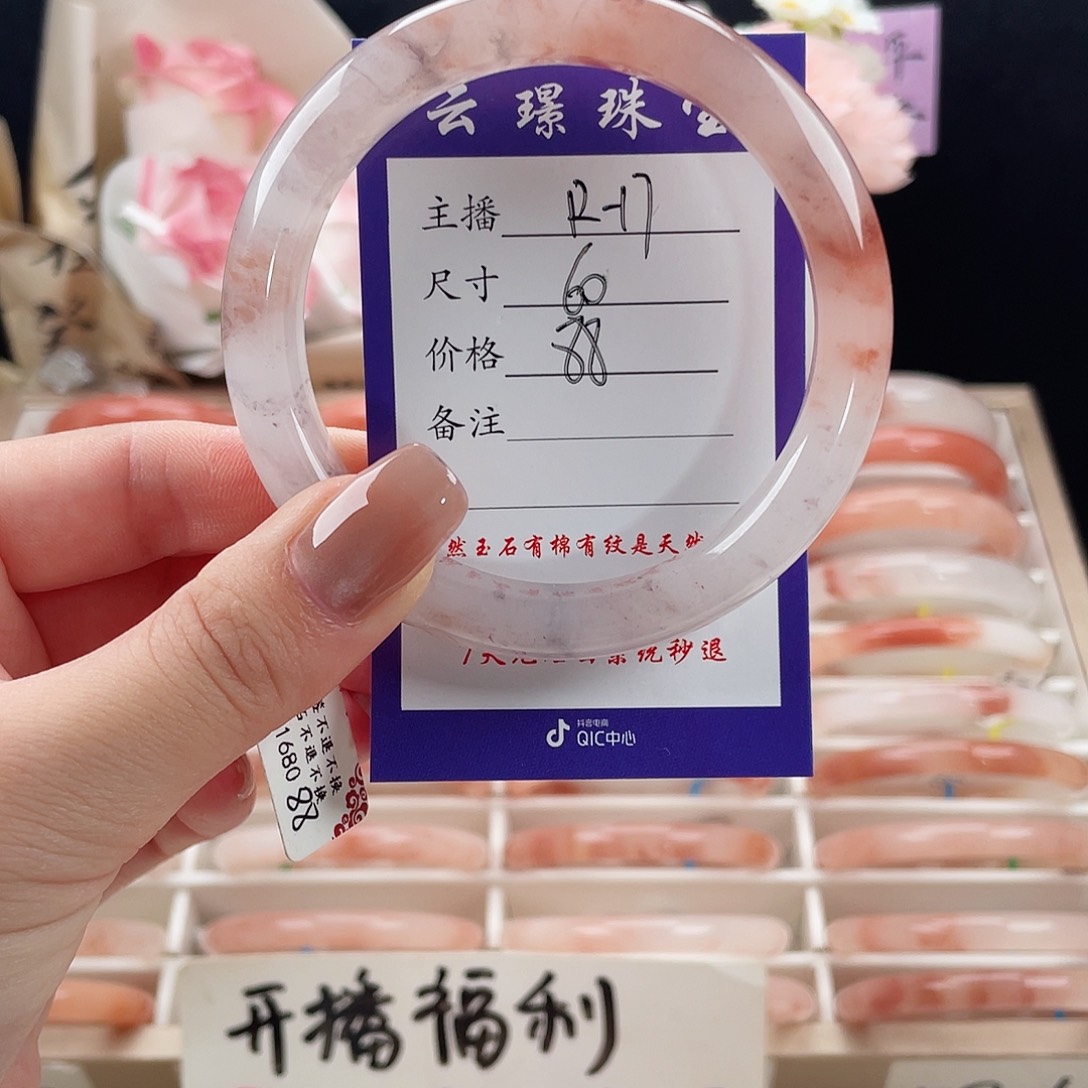 云璟珠宝
主播 R-17
尺寸 60
价格 88
备注
然玉石有棉有纹是天然
秒退
抖音电商
QIC中心
不退不换
不退不换
1680
88
开播福利